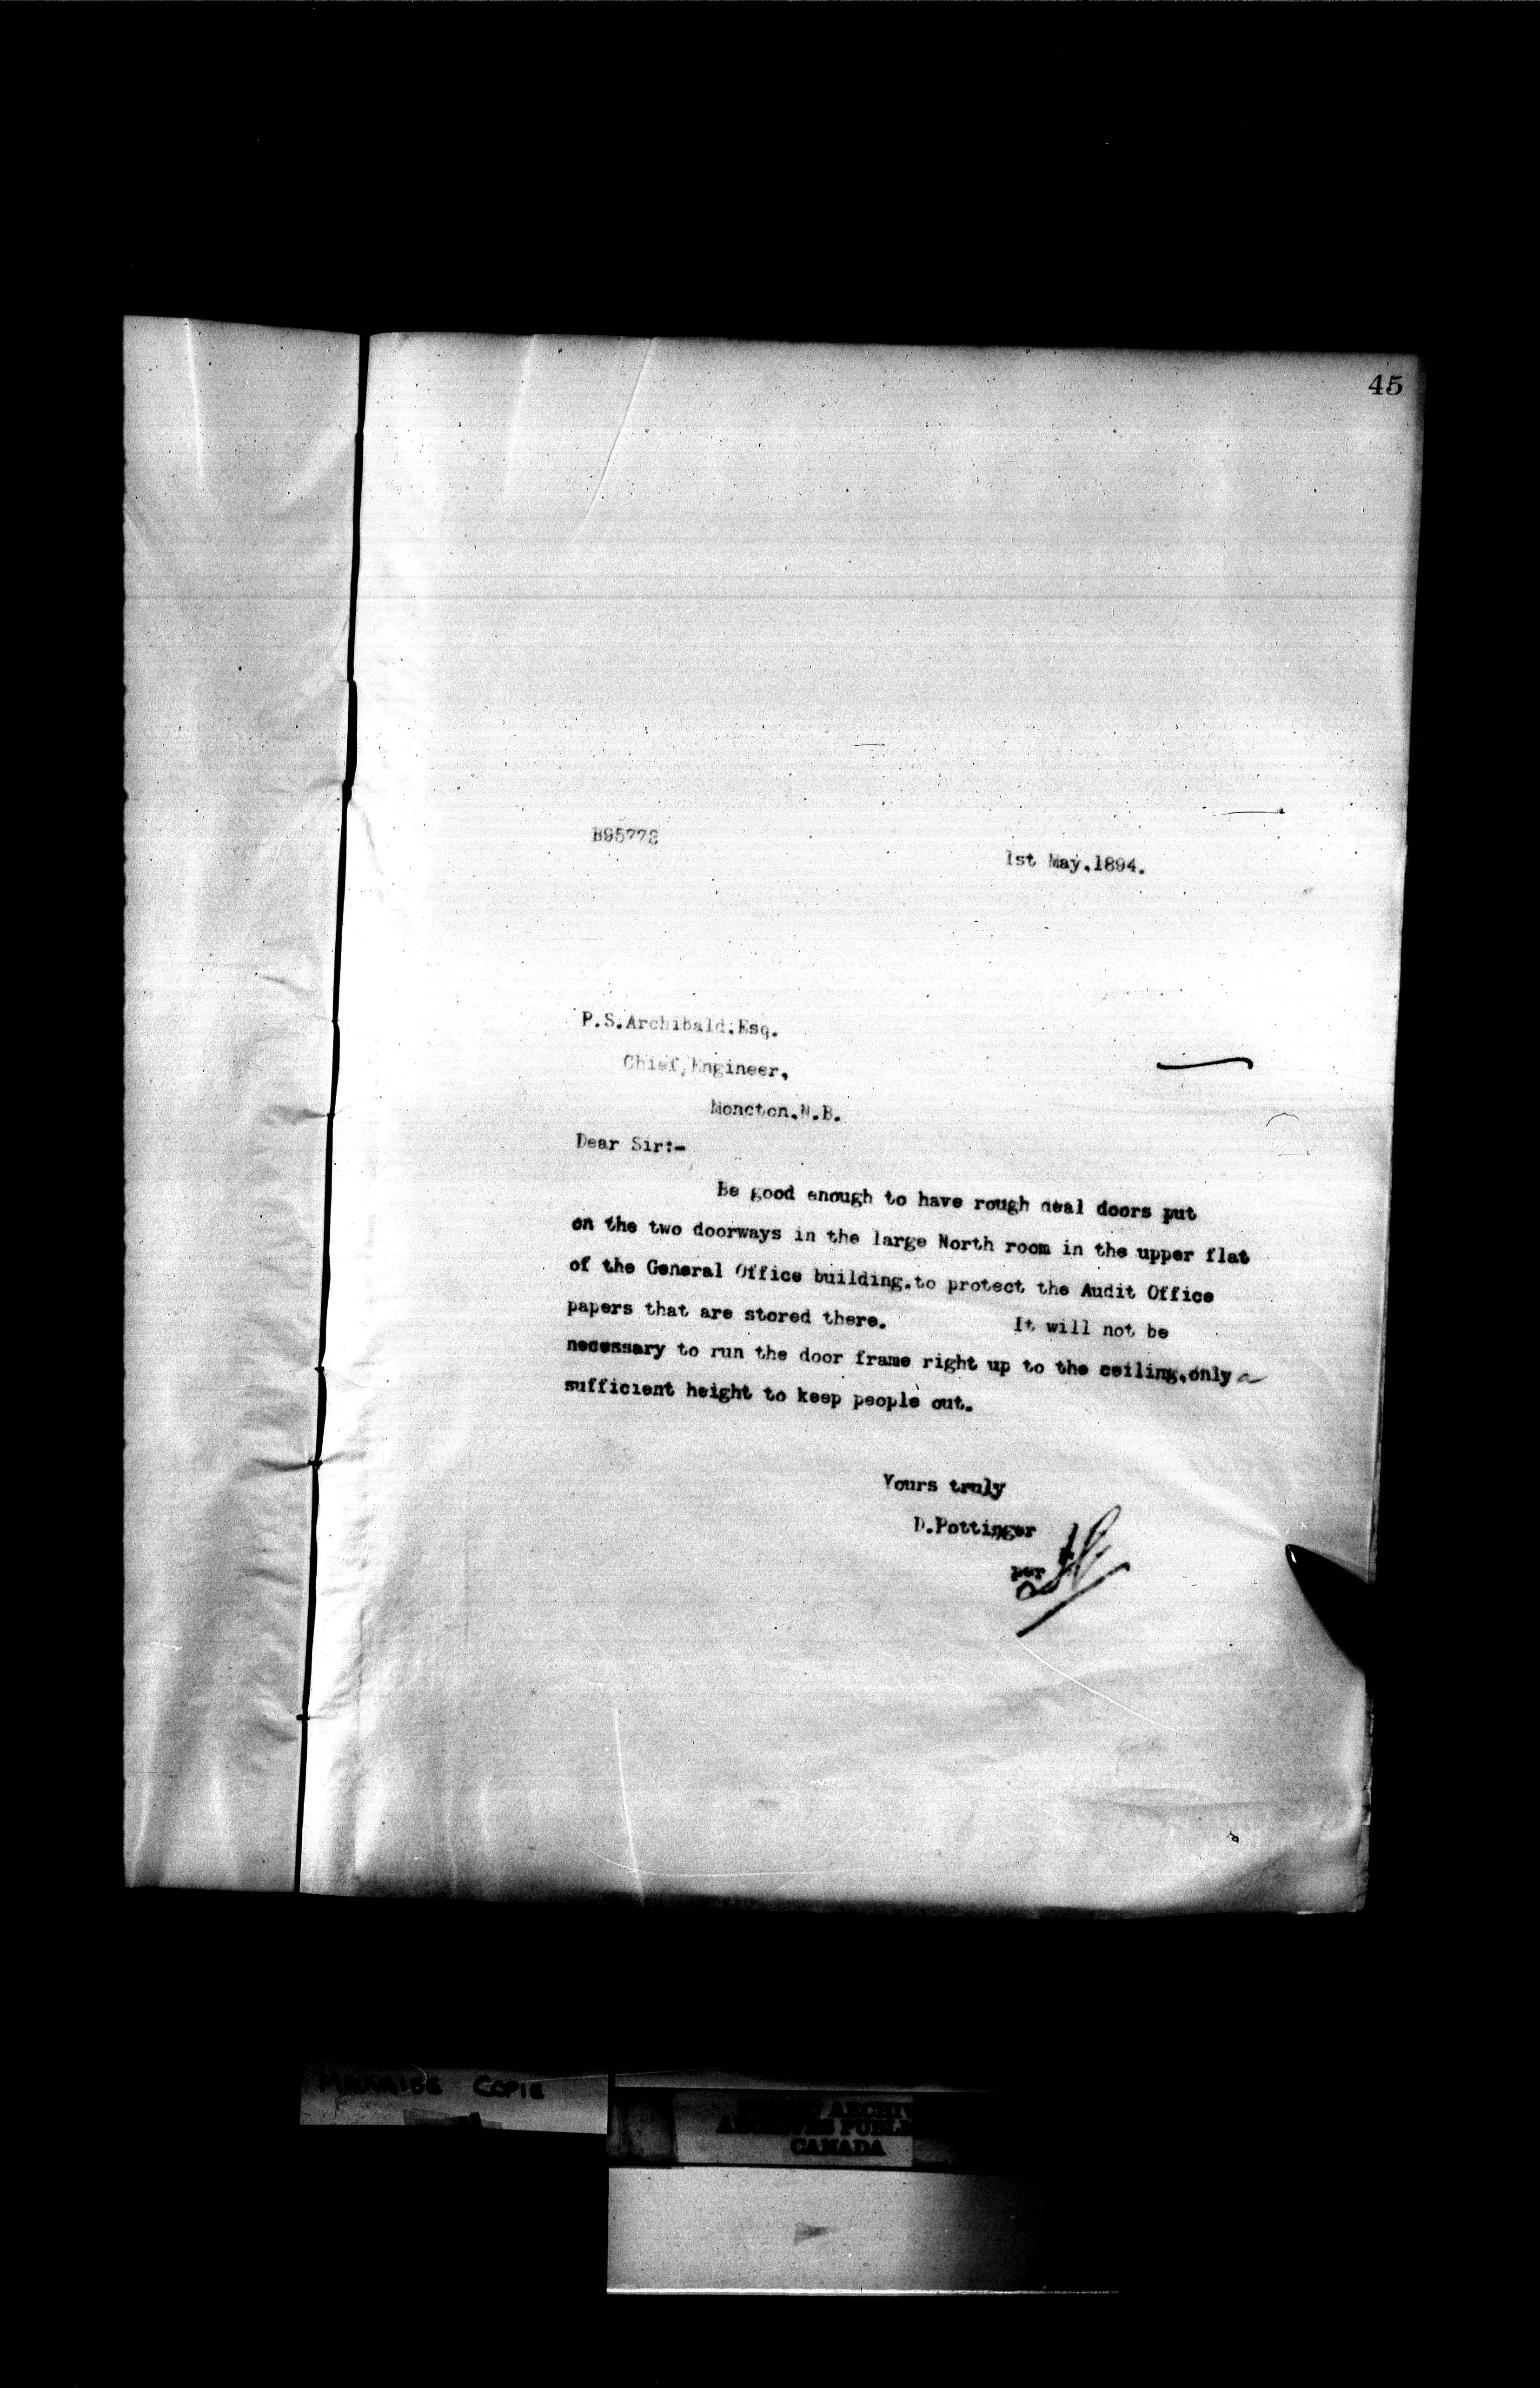 45
B95772
1st May.1894.
P.S.Archibald.Esq.
Chief.Engineer,
Moncton.N.B.
Dear Sir:-
Be good enough to have rough deal doors put
on the two doorways in the large North room in the upper flat
of the General Office building.to protect the Audit Office
papers that are stored there. It will not be
necessary to run the door frame right up to the ceiling.only a
sufficient height to keep people out.
Yours truly
D.Pottinger
per
COPIE
ARCHIV
PUBL
CANADA